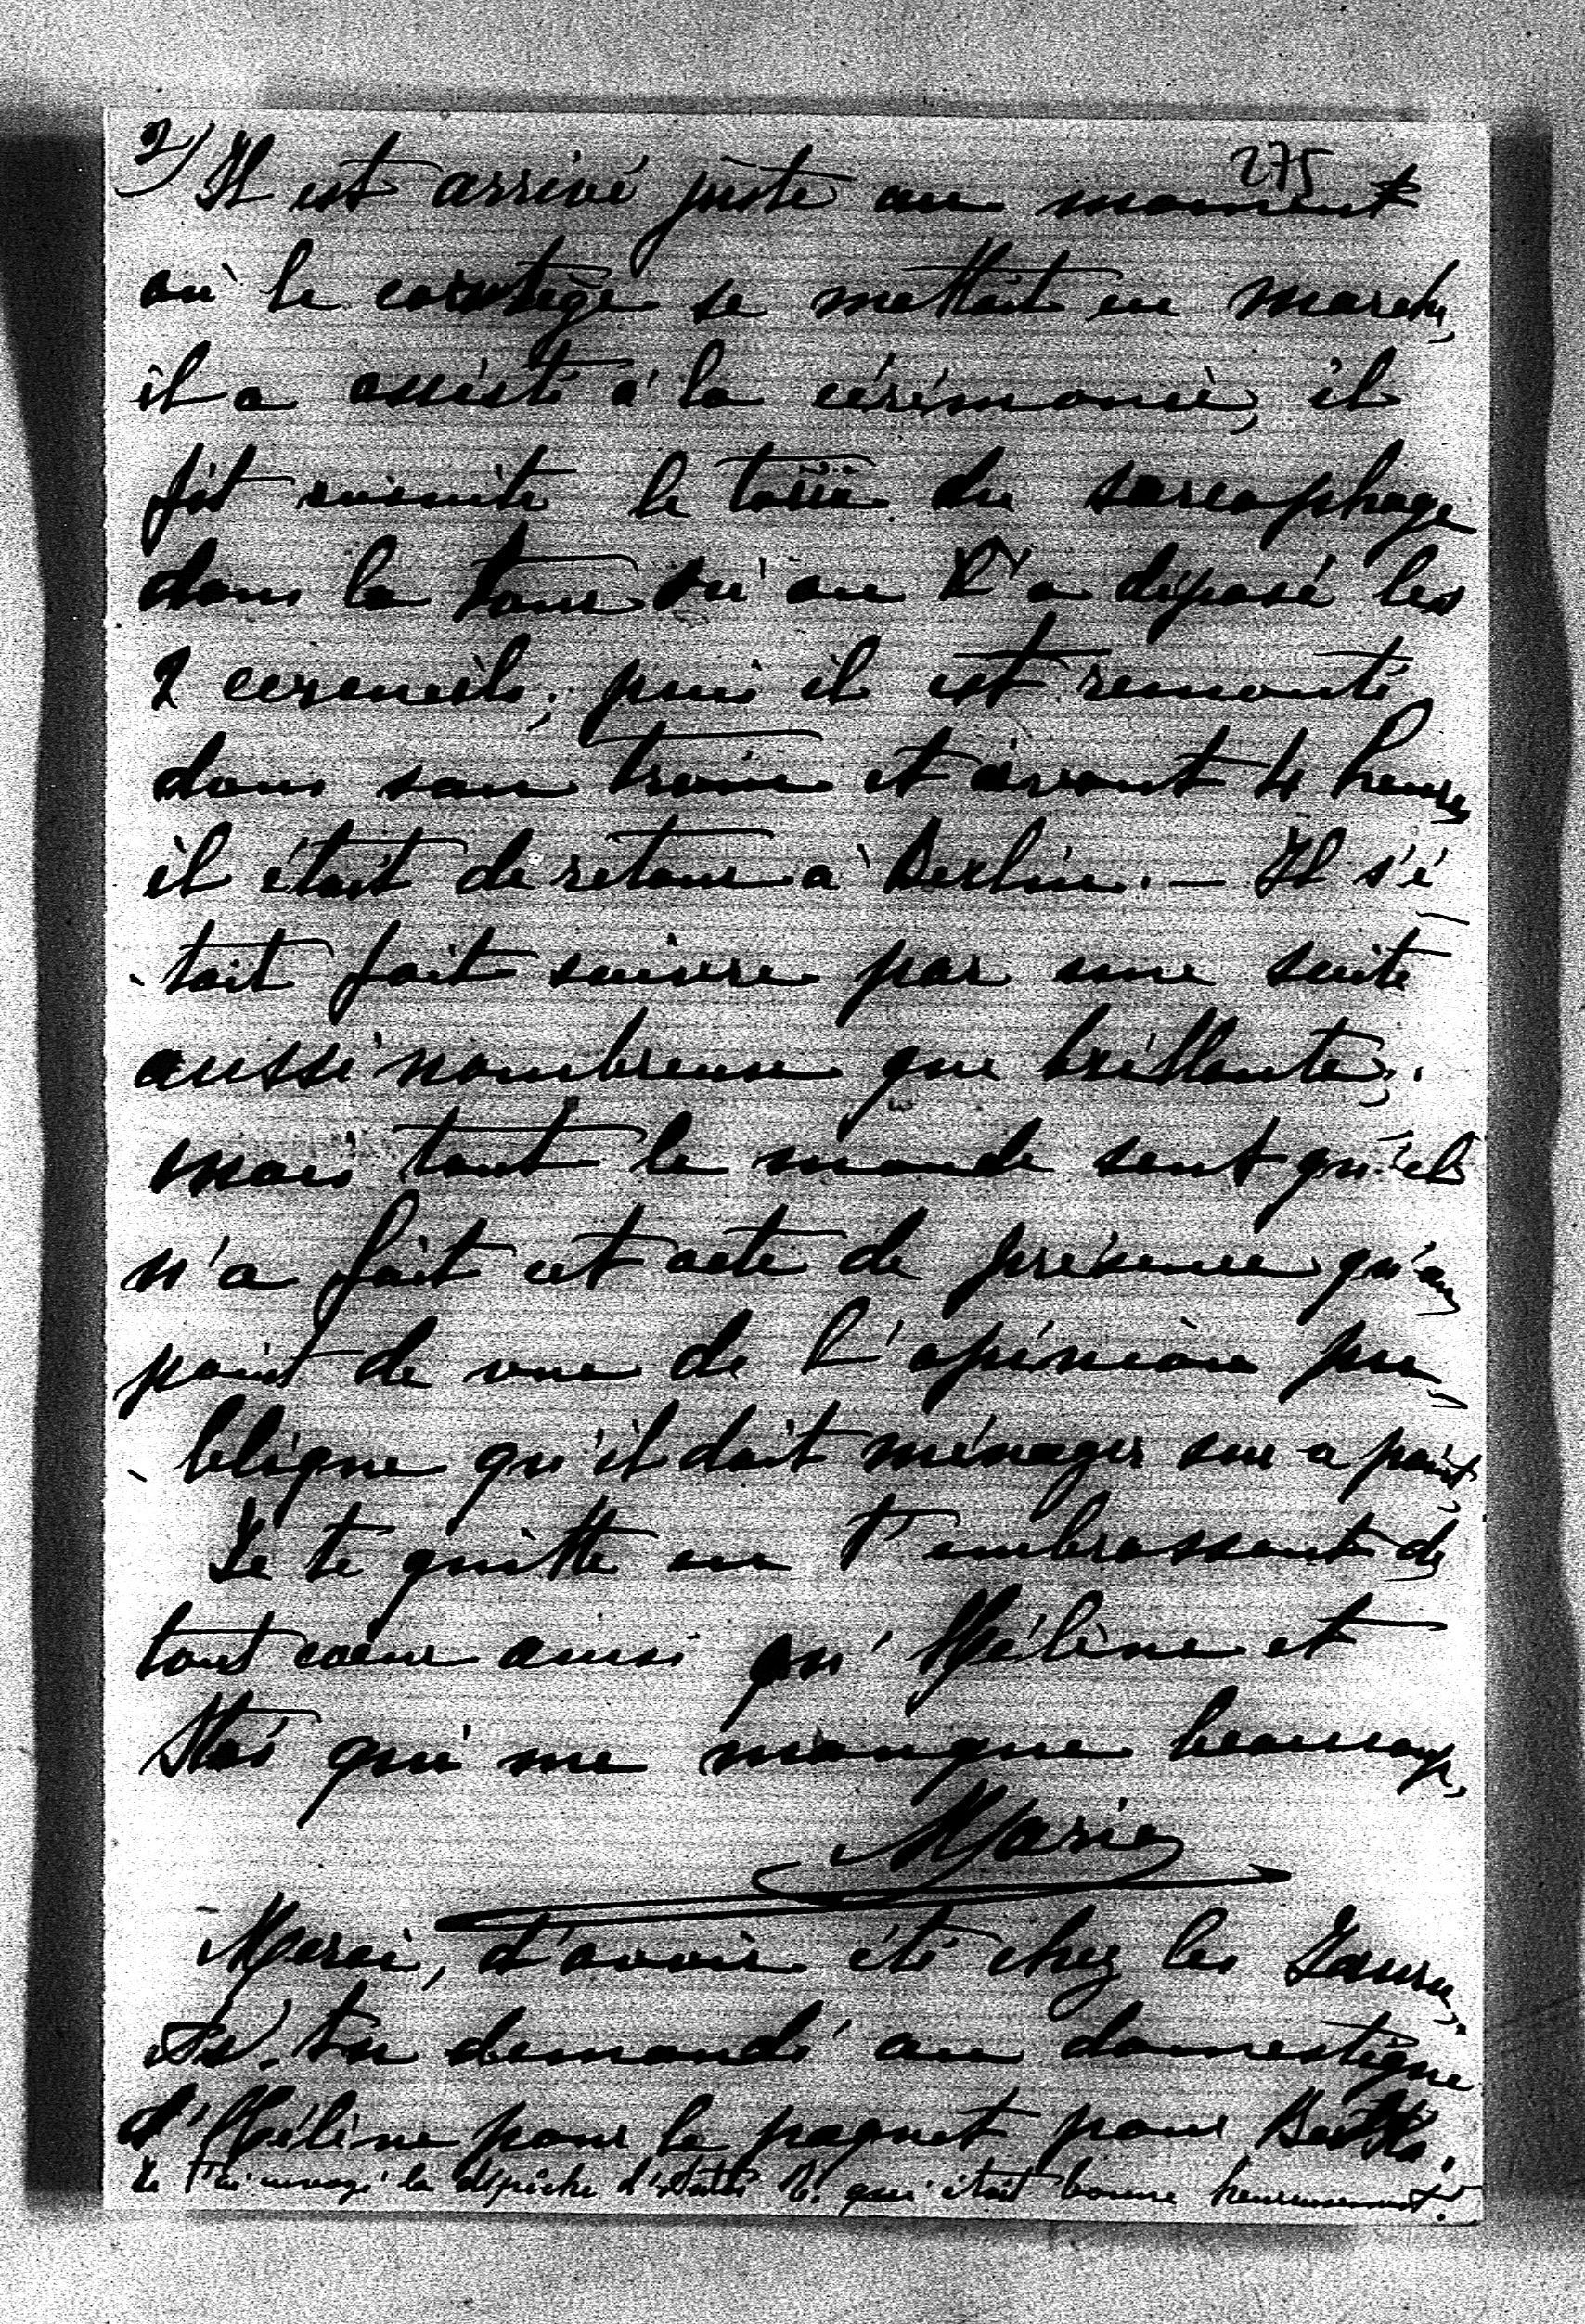 2) 275
Il est arrivé juste au moment
où le cortège se mettait en marche,
il a assisté à la cérémonie, il
fit ensuite le tour du sarcophage
dans la tour où on a déposé les
2 cercueils; puis il est remonté
dans son train et avant 4 heures
il était de retour à Berlin. — Il s'é-
-tait fait suivre par une suite
aussi nombreuse que brillante;
mais tout le monde sent qu'il
n'a fait cet acte de présence qu'au
point de vue de l'opinion pu-
-blique qu'il doit ménager sur ce point.
Je te quitte en t'embrassant de
tout cœur ainsi qu'Hélène et
Stas qui me manque beaucoup.
Marie
Merci, d'avoir été chez les
As-tu demandé au domestique
d'Hélène pour le paquet pour Bertha.
Je t'ai envoyé la dépêche d' R. qui était bonne heureusement!